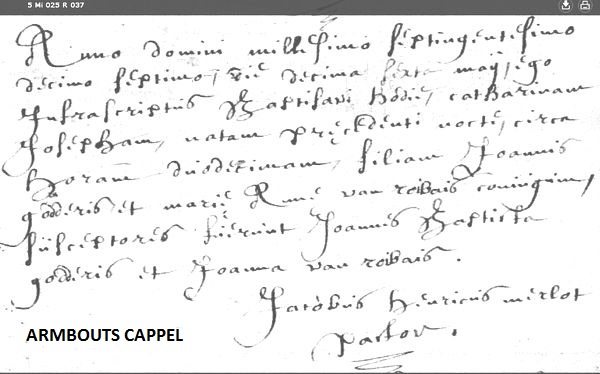 5 Mi 025 R 037
Anno domini millesimo septingentesimo
decimo septimo, die decima sexta maij, ego
Infrascriptus Baptisavi hodie, catharinam
Josepham, natam precedenti nocte, circa
horam duodecimam, filiam Joannis
godderis et marie Anne van robais coniugum,
susceptores fuerunt Joannes Baptista
godderis et Joanna van robais.
Jacobus henricus merlot
pastor.
ARMBOUTS CAPPEL